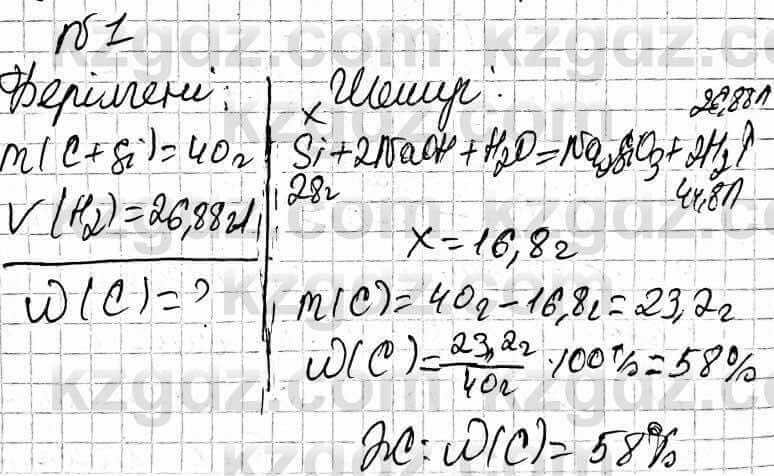 №1
Берілгені:
m(C+Si)=40г
V(H₂)=26,88л
W(C)=?
Шешуі:
x 26,88л
Si+2NaOH+H₂O=Na₂SiO₃+2H₂↑
28г 44,8л
x=16,8г
m(C)=40г-16,8г=23,2г
W(C)=23,2г/40г·100%=58%
Ж: W(C)=58%
kzgdz.com